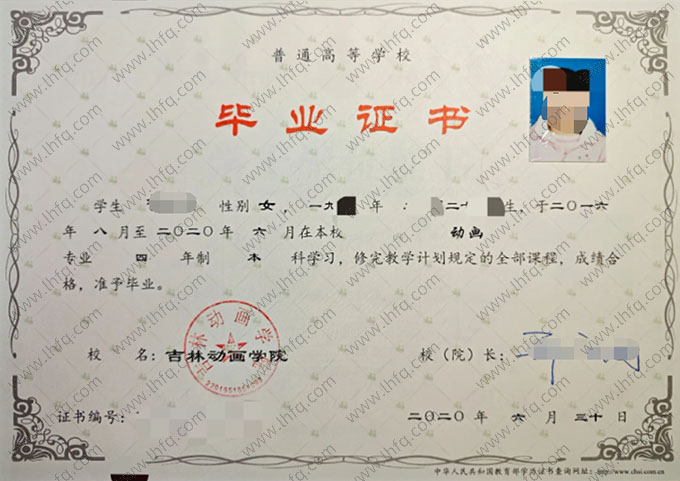 普通高等学校
毕业证书
学生 性别 女，一九 年 二十 生，于二〇一六
年 八 月至 二〇二〇 年 六 月在本校 动画
专业 四 年制 本 科学习，修完教学计划规定的全部课程，成绩合
格，准予毕业。
吉林动画学院
校 名：吉林动画学院 校（院）长：
证书编号： 二〇二〇 年 六 月 三十 日
中华人民共和国教育部学历证书查询网址：http://www.chsi.com.cn
www.lhfq.com